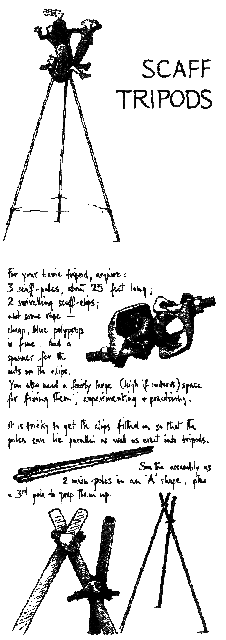 SCAFF
TRIPODS
For your home tripod, acquire:
3 scaff-poles, about 25 feet long;
2 swivelling scaff-clips;
and some rope —
cheap, blue polyprop
is fine. And a
spanner for the
nuts on the clips.
You also need a fairly large (high if indoors) space
for fixing them, experimenting & practising.
It is tricky to get the clips fitted on so that the
poles can lie parallel as well as erect into tripods.
See the assembly as
2 main poles in an 'A' shape, plus
a 3rd pole to prop them up.